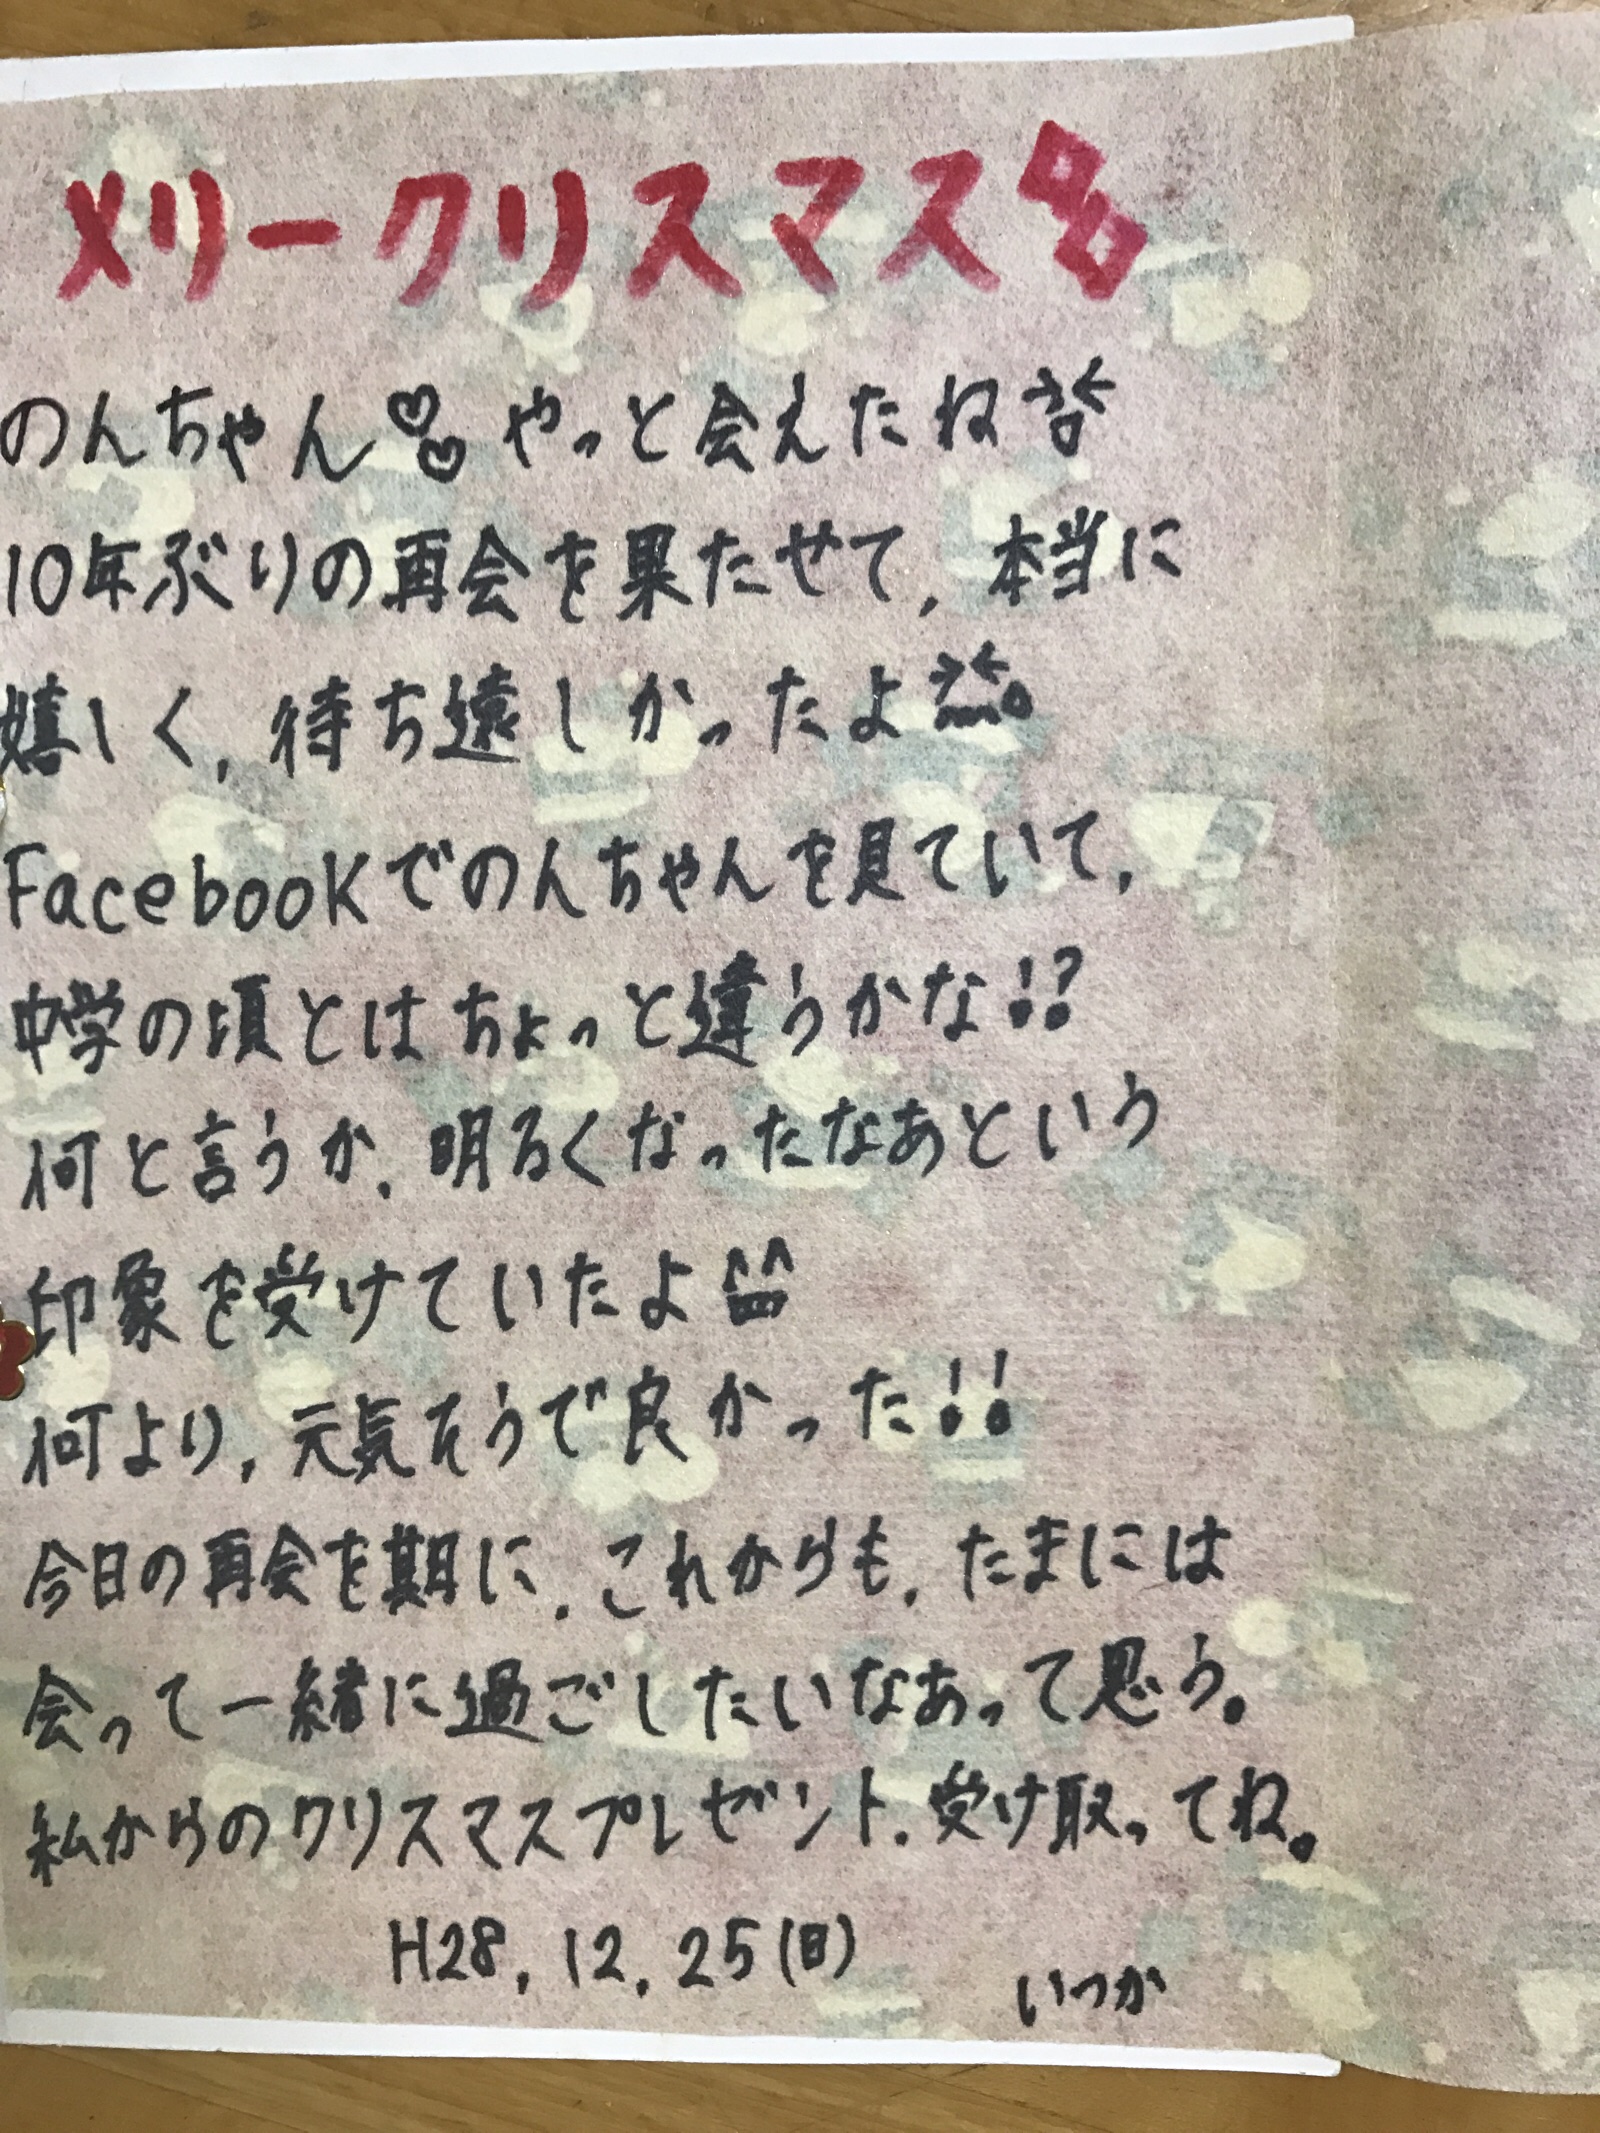 メリークリスマス
のんちゃん♡♡やっと会えたね
10年ぶりの再会を果たせて、本当に
嬉しく、待ち遠しかったよ
Facebookでのんちゃんを見ていて、
中学の頃とはちょっと違うかな!?
何と言うか、明るくなったなあという
印象を受けていたよ
何より、元気そうで良かった!!
今日の再会を期に、これからも、たまには
会って一緒に過ごしたいなあって思う。
私からのクリスマスプレゼント、受け取ってね。
H28.12.25(日)
いつか